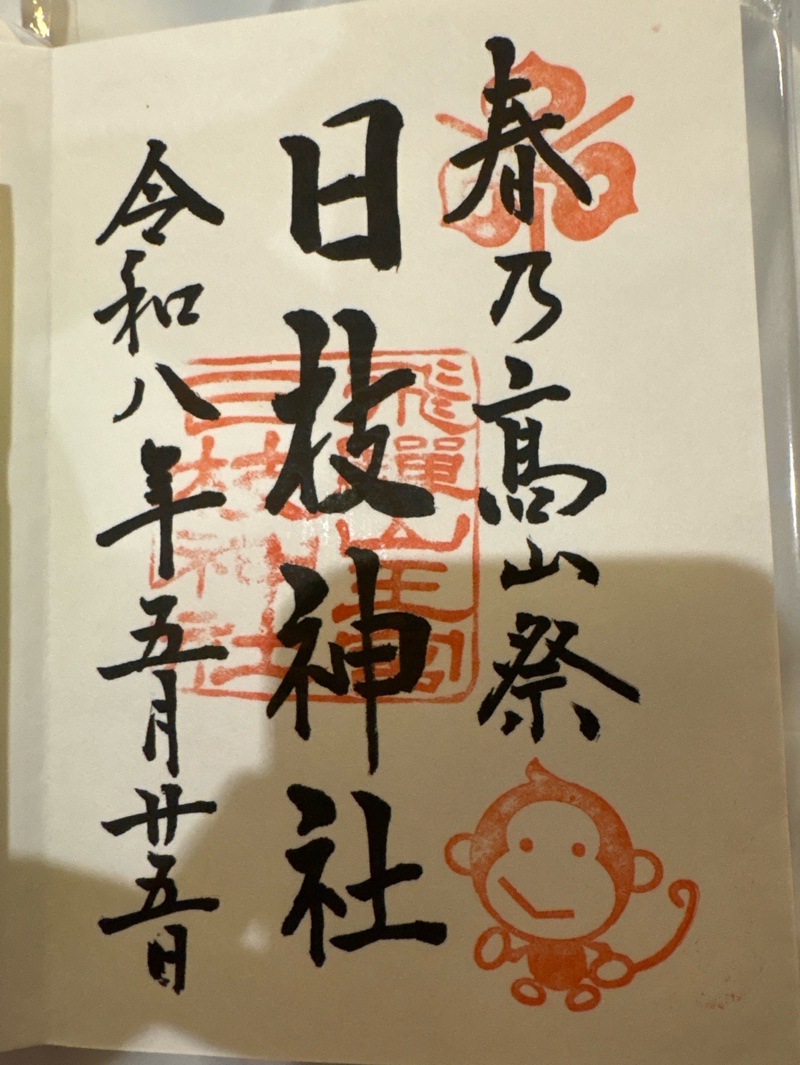 春乃高山祭
日枝神社
飛騨山王宮
日枝神社
令和八年五月廿五日